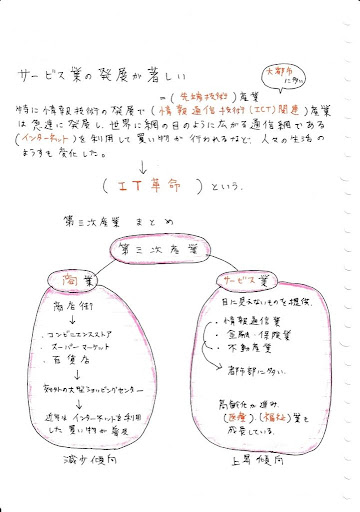 サービス業の発展が著しい
大都市に多い
=(先端技術)産業
特に情報技術の発展で(情報通信技術(ICT)関連)産業
は急速に発展し、世界に網の目のように広がる通信網である
(インターネット)を利用して買い物が行われるなど、人々の生活の
ようすも変化した。
↓
(IT革命)という.
第三次産業 まとめ
第三次産業
商業
商店街
↓
・コンビニエンスストア
・スーパーマーケット
・百貨店
↓
郊外の大型ショッピングセンター
↓
近年はインターネットを利用
した買い物が普及
減少傾向
サービス業
目に見えないものを提供.
・情報通信業
・金融・保険業
・不動産業
↓
都市部に多い.
高齢化が進み.
(医療)、(福祉)業も
成長している.
上昇傾向